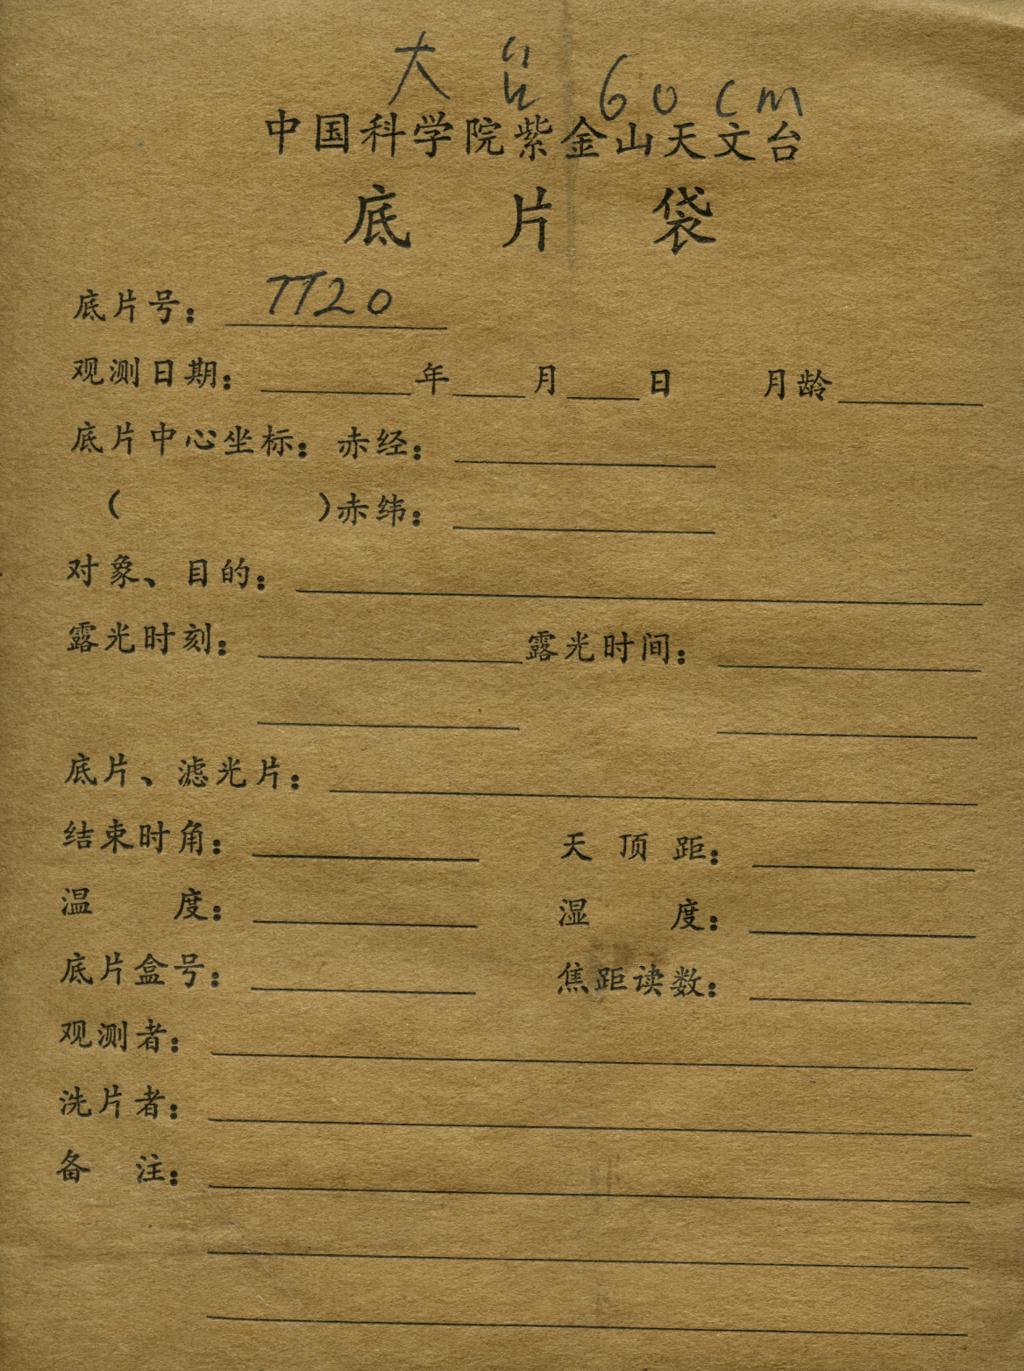 大 60cm
中国科学院紫金山天文台
底片袋
底片号：7720
观测日期： 年 月 日 月龄
底片中心坐标：赤经：
( )赤纬：
对象、目的：
露光时刻： 露光时间：
底片、滤光片：
结束时角： 天顶距：
温度： 湿度：
底片盒号： 焦距读数：
观测者：
洗片者：
备注：